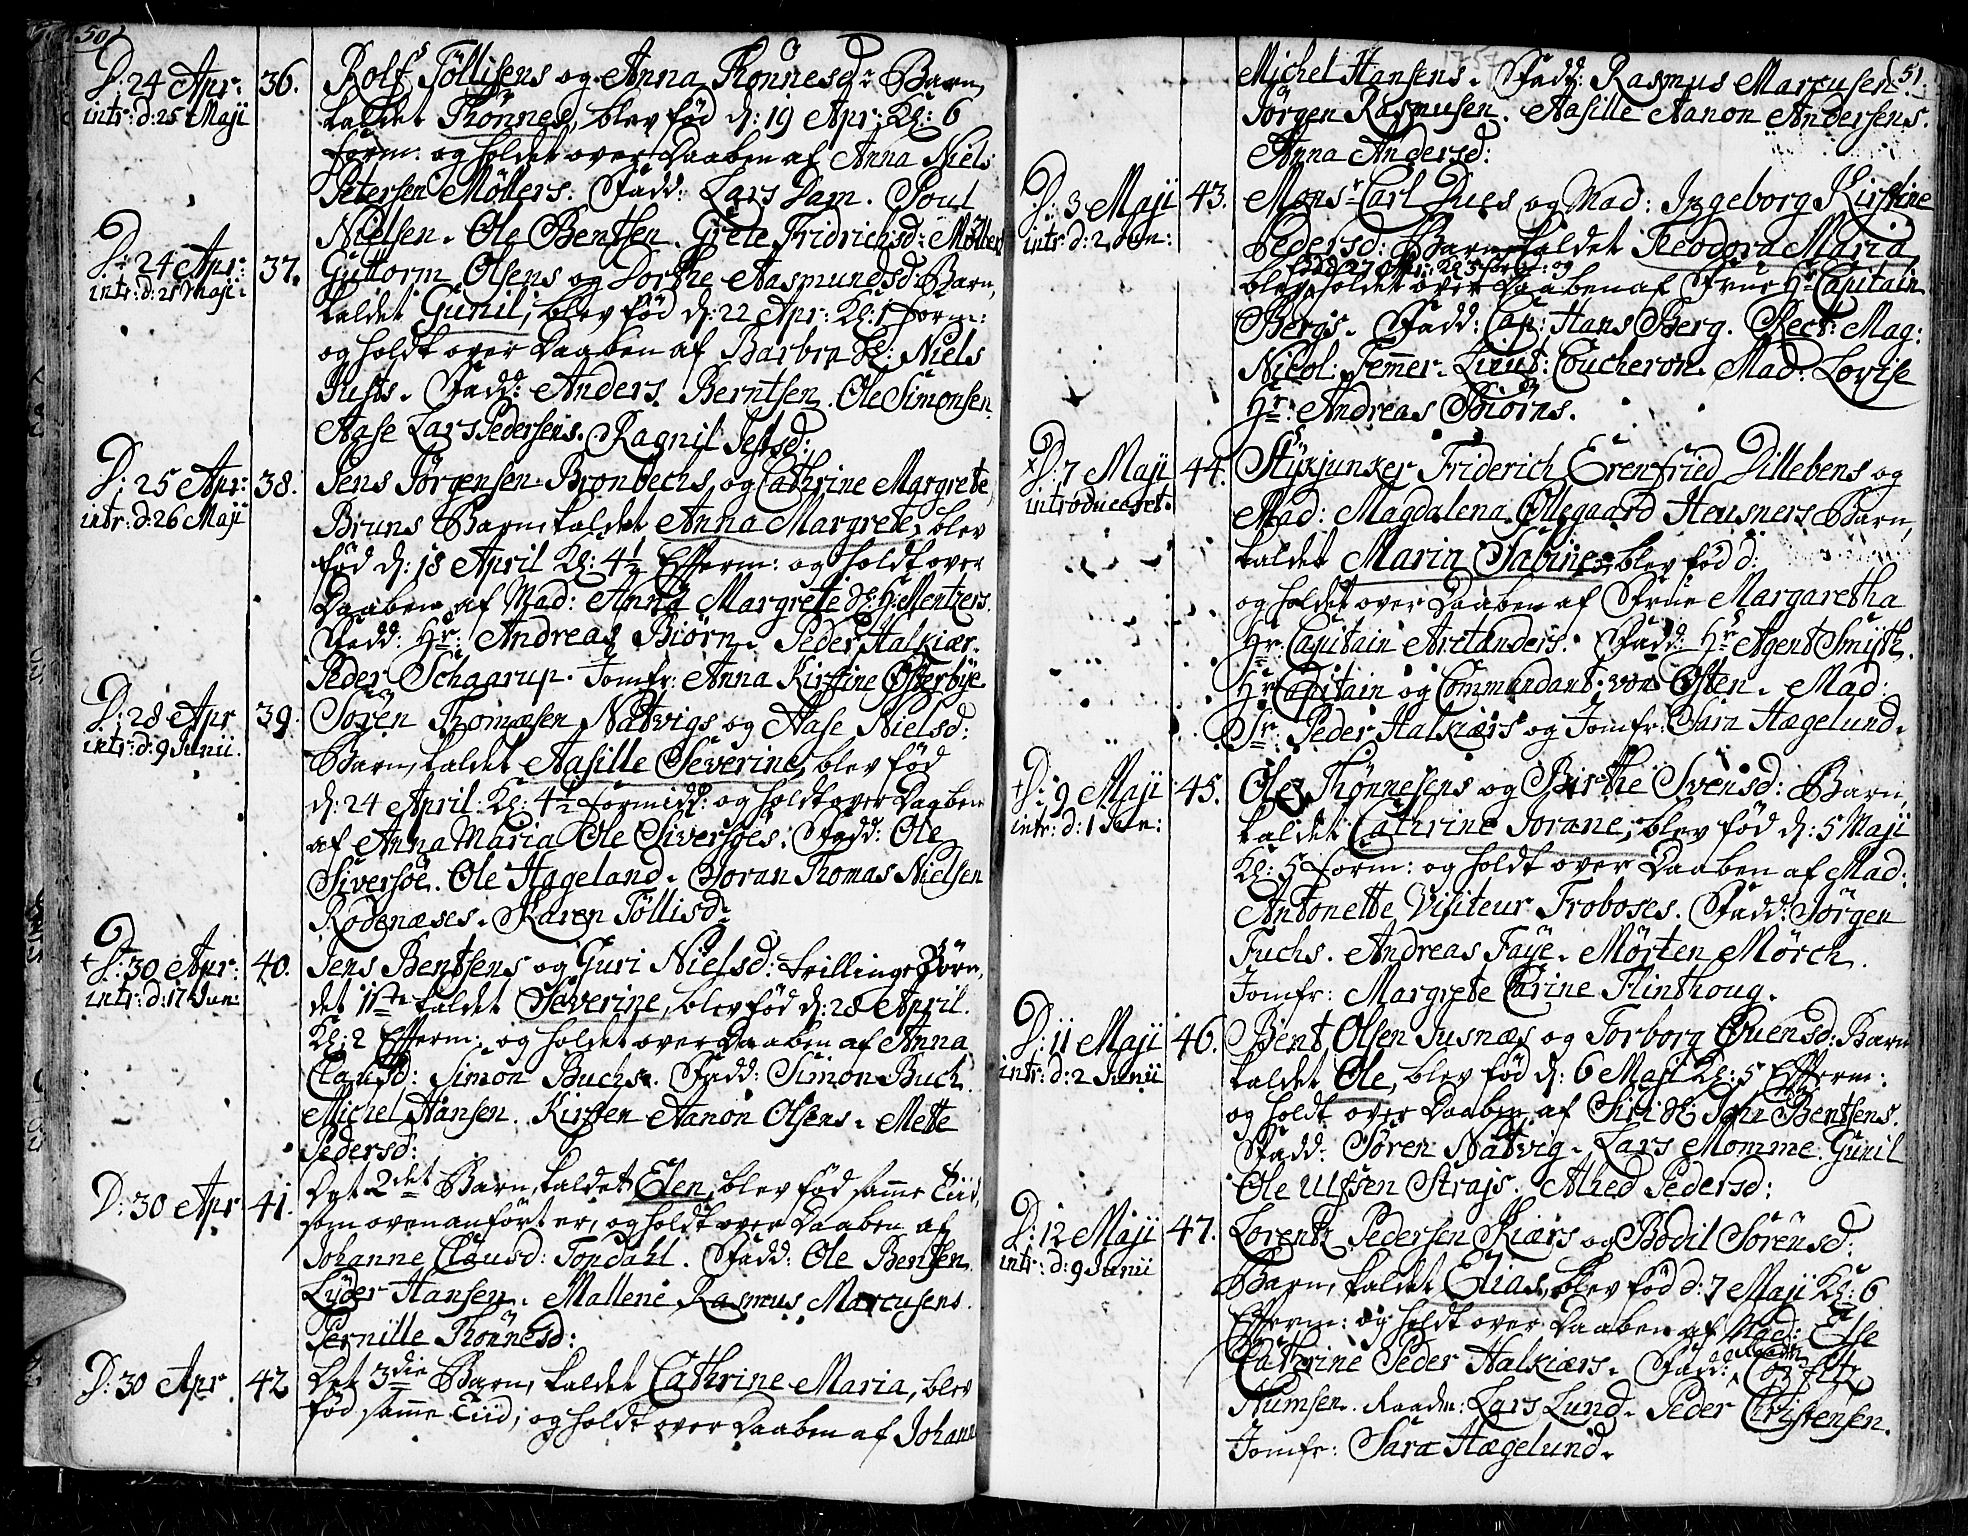 50
D: 24 Apr:
intr: d: 25 Maji
36.
Rolf Töllisens og Anna Thönnesd: Barn,
kaldet Thönnes, blev föd d: 19 Apr: Kl: 6
form: og holdet over Daaben af Anna Niels
Petersen Möllers. Fadd: Lars Dam. Poul
Nielsen. Ole Bentsen. Grete Fridrichsd: Möllers
D: 24 Apr:
intr: d: 25 Maji.
37.
Guttorm Olsens og Dorthe Aasmundsd: Barn,
kaldet Gunil, blev föd d: 22 Apr: Kl: 1 form:
og holdt over Daaben af Barbra Sl: Niels
Justs. Fadd: Anders Berntsen. Ole Simonsen
Aase Lars Pedersens. Ragnil Jensd:
D: 25 Apr:
intr: d: 26 Maji
38.
Jens Jörgensen Bronbechs, og Cathrine Margrete
Bruns Barn, kaldet Anna Margrete, blev
föd d: 18 April Kl: 4½ Efferm: og holdt over
Daaben af Mad: Anna Margrete Sl: H: Mentzers.
Fadd: Hr: Andreas Biörn. Peder Halkiær.
Peder Schaarup. Jomfr: Anna Kirstine Österbye
D: 28 Apr
intr: d: 9 Junii.
39.
Sören Thomæsen Natvigs og Aase Nielsd:
Barn, kaldet Aasille Severine, blev föd
d: 24 April: Kl: 4½ formidd: og holdt over Daaben
af Anna Maria Ole Siversöes. Fadd: Ole
Siversöe. Ole Hageland. Joran Thomas Nielsen
Rodenæses. Karen Töllisd:
+ D: 30 Apr:
intr: d: 17 Jun:
40.
Jens Bentsens og Guri Nielsd: trillinge Börn,
det 1ste kaldet Severine, blev föd d: 28 April.
Kl: 2 Efferm: og holdet over Daaben af Anna
Clausd: Simon Buchs. Fadd: Simon Buch.
Michel Hansen. Kirsten Aanon Olsens. Mette
Pedersd:
D: 30 Apr
41.
Det 2det Barn, kaldet Elen, blev föd samme Tiid,
som ovenanfört er, og holdt over Daaben af
Johanne Clausd: Topdahl. Fadd: Ole Bentsen
Lyder Hansen. Mallene Rasmus Marcusens.
Pernille Thönnesd:
D: 30 Apr
42
Det 3die Barn, kaldet Cathrine Maria, blev
föd samme Tiid; og holdt over Daaben af Johan
1757
51.
Michel Hansens. Fadd: Rasmus Marcusen
Jörgen Rasmusen. Aasille Aanon Andersens.
Anna Andersd:
D: 3 Maji
intr: d: 2 Jun:
43.
Monsr Carl Dues og Mad: Ingeborg Kirstine
Pedersd: Barn kaldet Teodora Maria,
föd d: 27 Apr: Kl 5
blev holdet over Daaben af Frue Hr Capitain
Bergs. Fadd: Cap: Hans Berg. Rect: Mag:
Nicol: Femmer. Lieut: Coucheron. Mad: Lovise
Hr: Andreas Biörns.
D: 7 Maji
introduceret.
44.
Stykjunker Friderich Erenfried Dillebens og
Mad: Magdalena Öllegaard Heusners Barn,
kaldet Maria Sabine, blev föd d:
og holdet over Daaben af Frue Margaretha
Hr: Capitain Aretanders. Fadd: Hr Agent Smith.
Hr Capitain og Commandant von Osten. Mad:
Sr: Peder Halkiærs og Jomfr: Sara Hægelund.
+ D: 9 Maji
intr: d: 1 Jun:
45.
Ole Thönnesens og Birthe Svensd: Barn,
kaldet Cathrine Jorane, blev föd d: 5 Maji
Kl: 5 form: og holdt over Daaben af Mad:
Antonette Visiteur Froboses. Fadd: Jörgen
Fuchs. Andreas Faye. Mörten Mörch.
Jomfr: Margrete Carine Flinthoug.
D: 11 Maji
intr: d: 2 Junii
46.
Bent Olsen Jusnæs og Torborg Ouensd: Barn
kaldet Ole, blev föd d: 6 Maji Kl: 5 Efferm:
og holdt over Daaben af Siri Sl John Bentsens.
Fadd: Sören Natvig. Lars Momme. Gunil
Ole Ulfsen Strajs. Alhed Pedersd:
D: 12 Maji
intr: d: 9 Junii
47.
Lorentz Pedersen Kiærs og Bodil Sörensd:
Barn, kaldet Elias, blev föd d: 7 Maji Kl: 6
Efferm: og holdt over Daaben af Mad: Else
Cathrine Peder Halkiærs. Fadd:
Numsen. Raadm: Lars Lund. Peder Christensen.
Jomfr: Sara Hægelund.